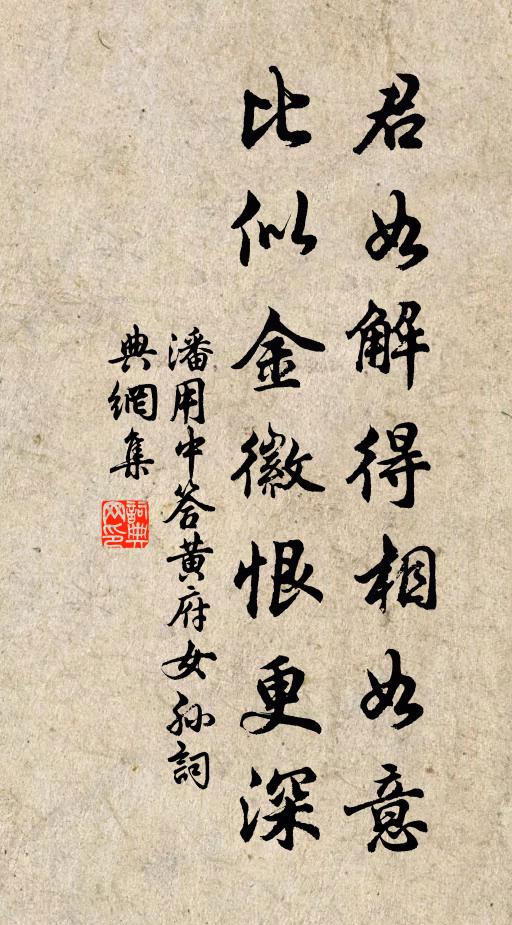 君如解得相如意
比似金徽恨更深
潘用中答黃府女孫詞
典網集
詞典網印